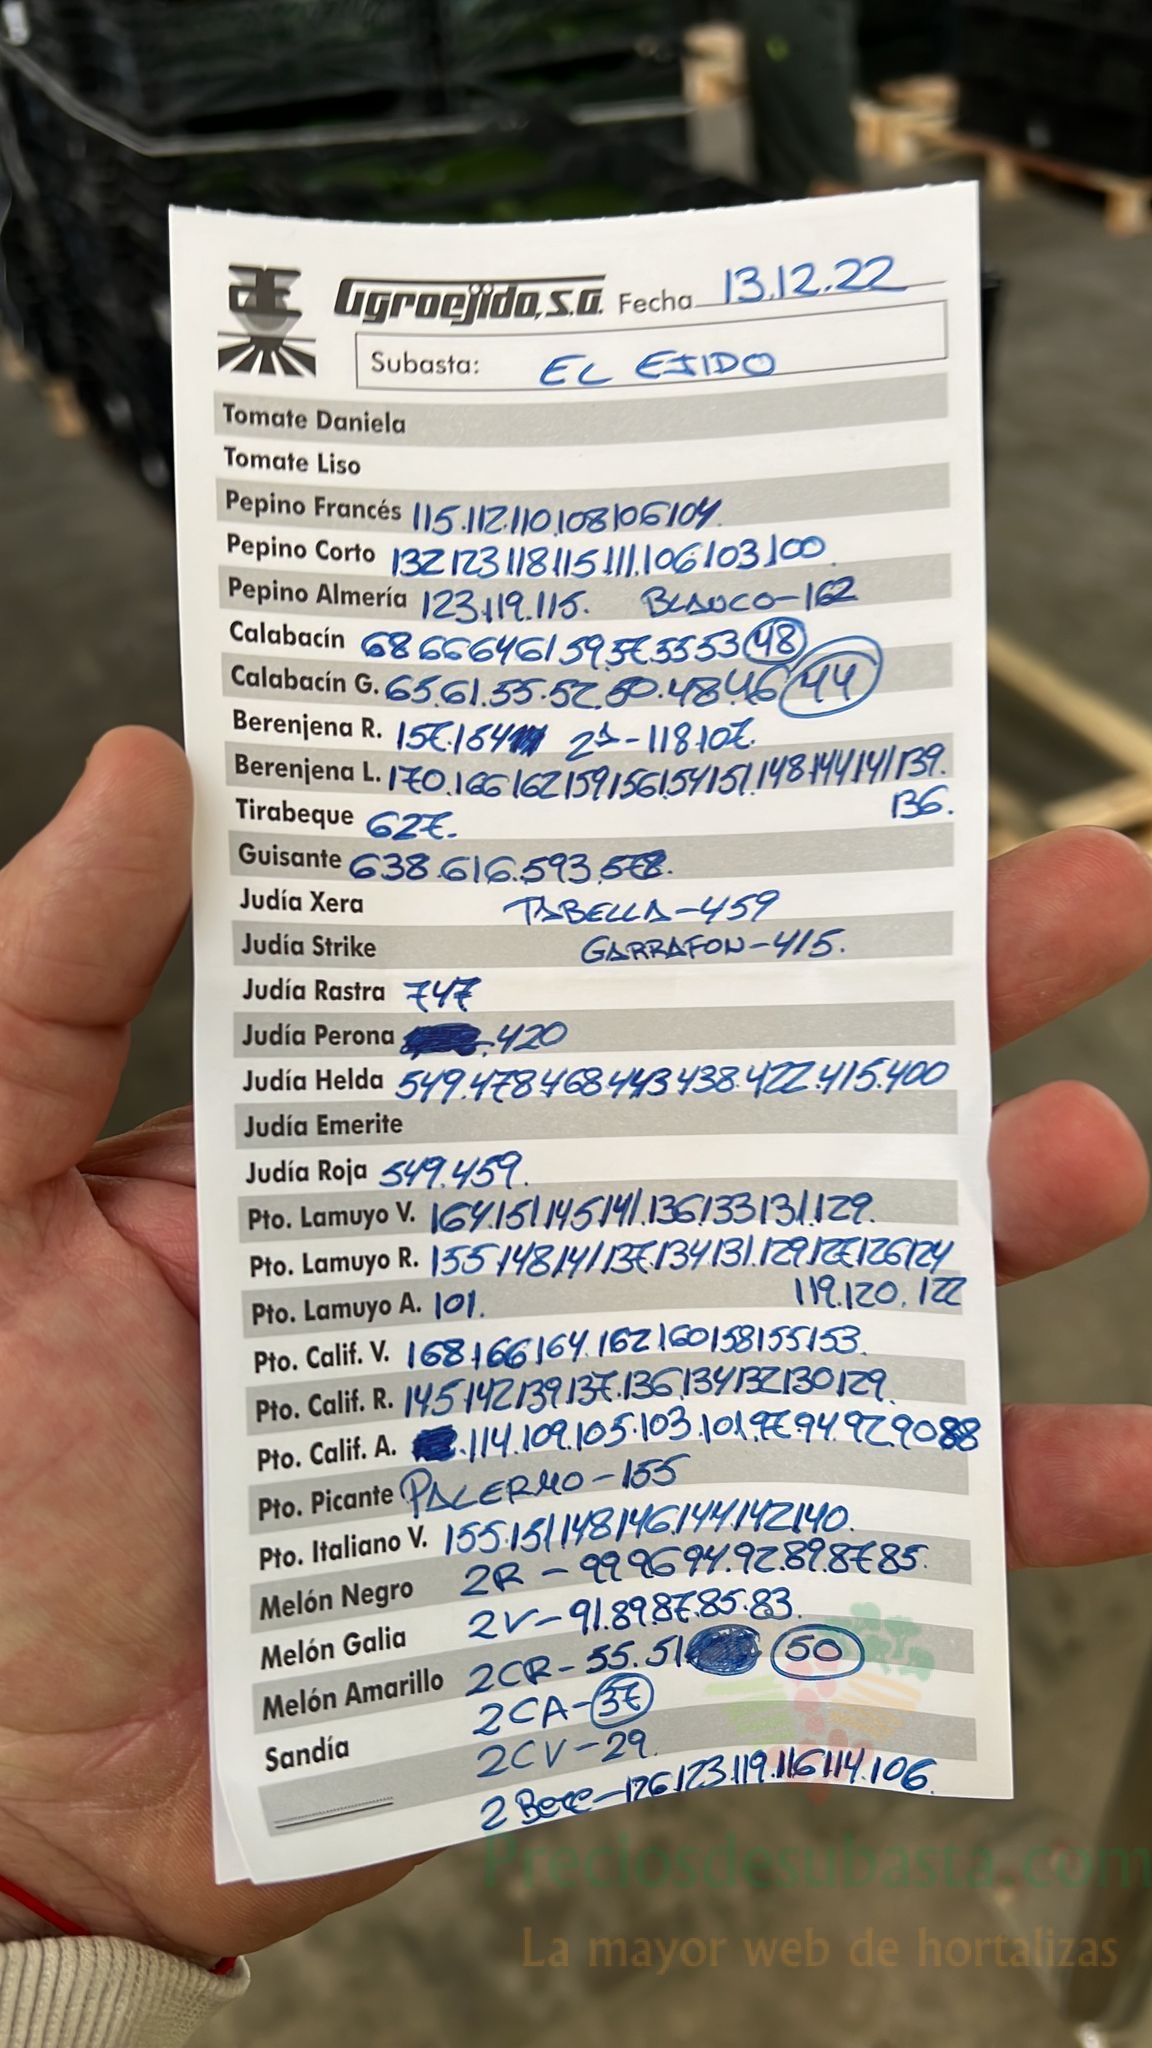 Agroejido, s.a. Fecha 13.12.22
Subasta: EL EJIDO
Tomate Daniela
Tomate Liso
Pepino Francés 115.112.110.108.106.104
Pepino Corto 132.123.118.115.111.106.103.100
Pepino Almería 123.119.115. BLANCO-162
Calabacín 68.66.64.61.59.57.55.53.48
Calabacín G. 65.61.55.52.50.48.46.44
Berenjena R. 157.154 2ª-118.107.
Berenjena L. 170.166.162.159.156.154.151.148.144.141.139.
136.
Tirabeque 627.
Guisante 638.616.593.578.
Judía Xera TABELLA-459
Judía Strike GARRAFON-415.
Judía Rastra 747
Judía Perona 420
Judía Helda 549.478.468.443.438.422.415.400
Judía Emerite
Judía Roja 549.459.
Pto. Lamuyo V. 164.151.145.141.136.133.131.129.
Pto. Lamuyo R. 155.148.141.137.134.131.129.127.126.124
119.120.122
Pto. Lamuyo A. 101.
Pto. Calif. V. 168.166.164.162.160.158.155.153.
Pto. Calif. R. 145.142.139.137.136.134.132.130.129.
Pto. Calif. A. .114.109.105.103.101.97.94.92.90.88
Pto. Picante PALERMO-155
Pto. Italiano V. 155.151.148.146.144.142.140.
Melón Negro 2R-99.96.94.92.89.87.85.
Melón Galia 2V-91.89.87.85.83.
Melón Amarillo 2CR-55.51 50
2CA-37
Sandía 2CV-29.
2 Bere-126.123.119.116.114.106.
Preciosdesubasta.com
La mayor web de hortalizas